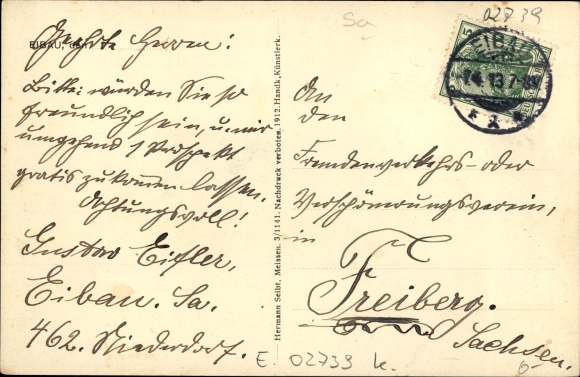 Sa
02739
EIBAU,
Geehrte Herren!
Bitte: würden Sie so
freundlich sein, u. mir
umgehend 1 Prospekt
gratis zukommen lassen.
Achtungsvoll!
Gustav Eifler,
Eibau. Sa.
462. Niederdorf.
Hermann Seibt, Meissen. 3/1141. Nachdruck verboten. 1912. Handk. Künstlerk.
EIBAU
13 7
An
den
Fremdenverkehrs- oder
Verschönerungsverein,
in
Freiberg.
Sachsen.
E. 02739 k.